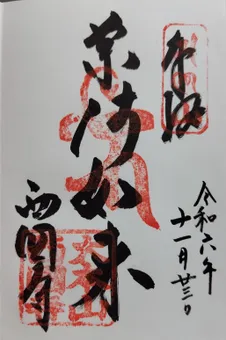 奉拝
薬師如来
西国寺
令和六年
十一月廿三日